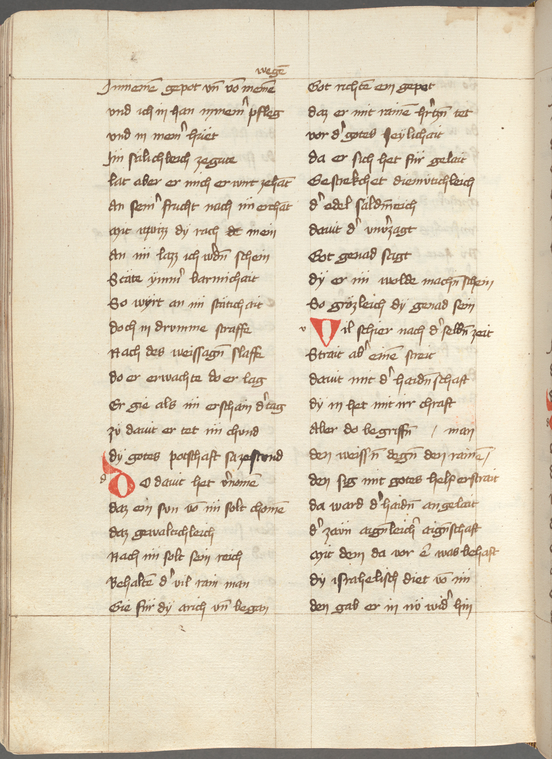 wegē
Inneme gepot vn̄ vō meine
vnd ich in han in meinr pfleg
vnd in meinr huet
Im sälichleich ze guet
lat aber er mich er wirt zehāt
An seinr frucht nach im erchāt
Mit dy rach mein
An im laz ich wdn schein
Stäte ymmr barmichait
So wyrt an im stätichait
doch in drumme straffe
Nach des weissagn slaffe
do er erwachte do er lag
Er gie als im erschain drtag
zu dauit er tet im chund
dy gotes potschaft sa zestund
d Do dauit het vrnomē
daz ein sun vō im solt chomē
daz gewaltichleich
Nach im solt sein reich
Behalte dr vil rain man
Gie für dy arich vn̄ began
Got richte ein gepet
daz er mit raine hrtzn tet
vor dr gotes heylichait
da er sich het für gelait
Gestrekchet diemutichleich
dr edel säldnreich
dauit dr vnvrzagt
Got genad sagt
dy er im wolde machn schein
So grözleich dy genad sein
v Vil schier nach dr seldn zeit
Strait abr einē streit
dauit mit dr haidnschaft
dy in het mit irr chraft
Aber do begriffn / man
den weissn degn den rainē /
den sig mit gotes helf erstrait
da ward dr haidn an gelait
dr zain aignleichr aignschaft
Mit dem da vor ē was behaft
dy israhelisch diet vō im
den gab er in nō widr hin